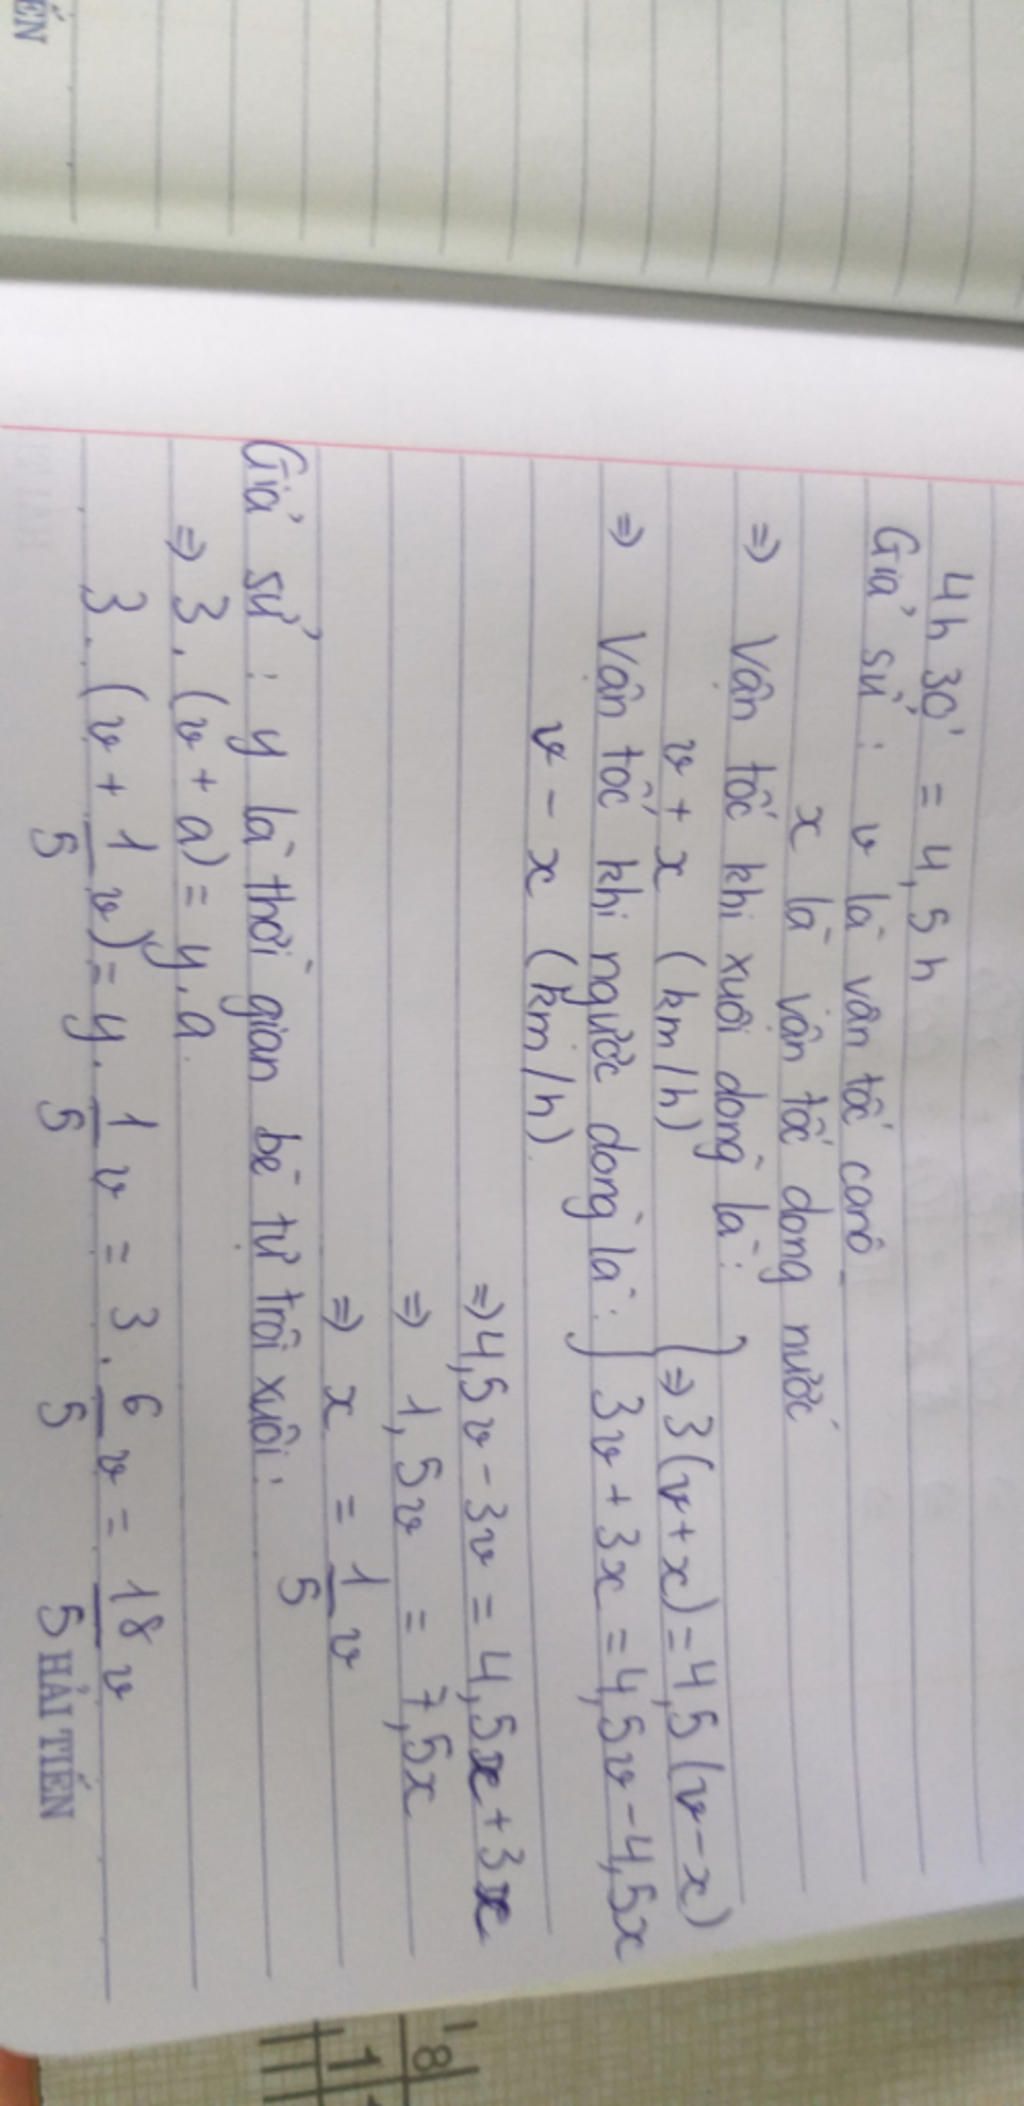 4h 30' = 4,5h
Giả sử : v là vân tốc canô
x là vận tốc dong nước
⇒ Vận tốc khi xuôi dong là :
v + x (km/h)
⇒ 3(v+x) = 4,5(v-x)
⇒ Vận tốc khi ngược dong là :
3v + 3x = 4,5v - 4,5x
v - x (km/h)
⇒ 4,5v - 3v = 4,5x + 3x
⇒ 1,5v = 7,5x
⇒ x = 1/5 v
Giả sử : y là thời gian bè tự trôi xuôi :
⇒ 3.(v + a) = y.a
3.(v + 1/5 v) = y. 1/5 v = 3. 6/5 v = 18/5 v
HẢI TIẾN
ẾN
8
1